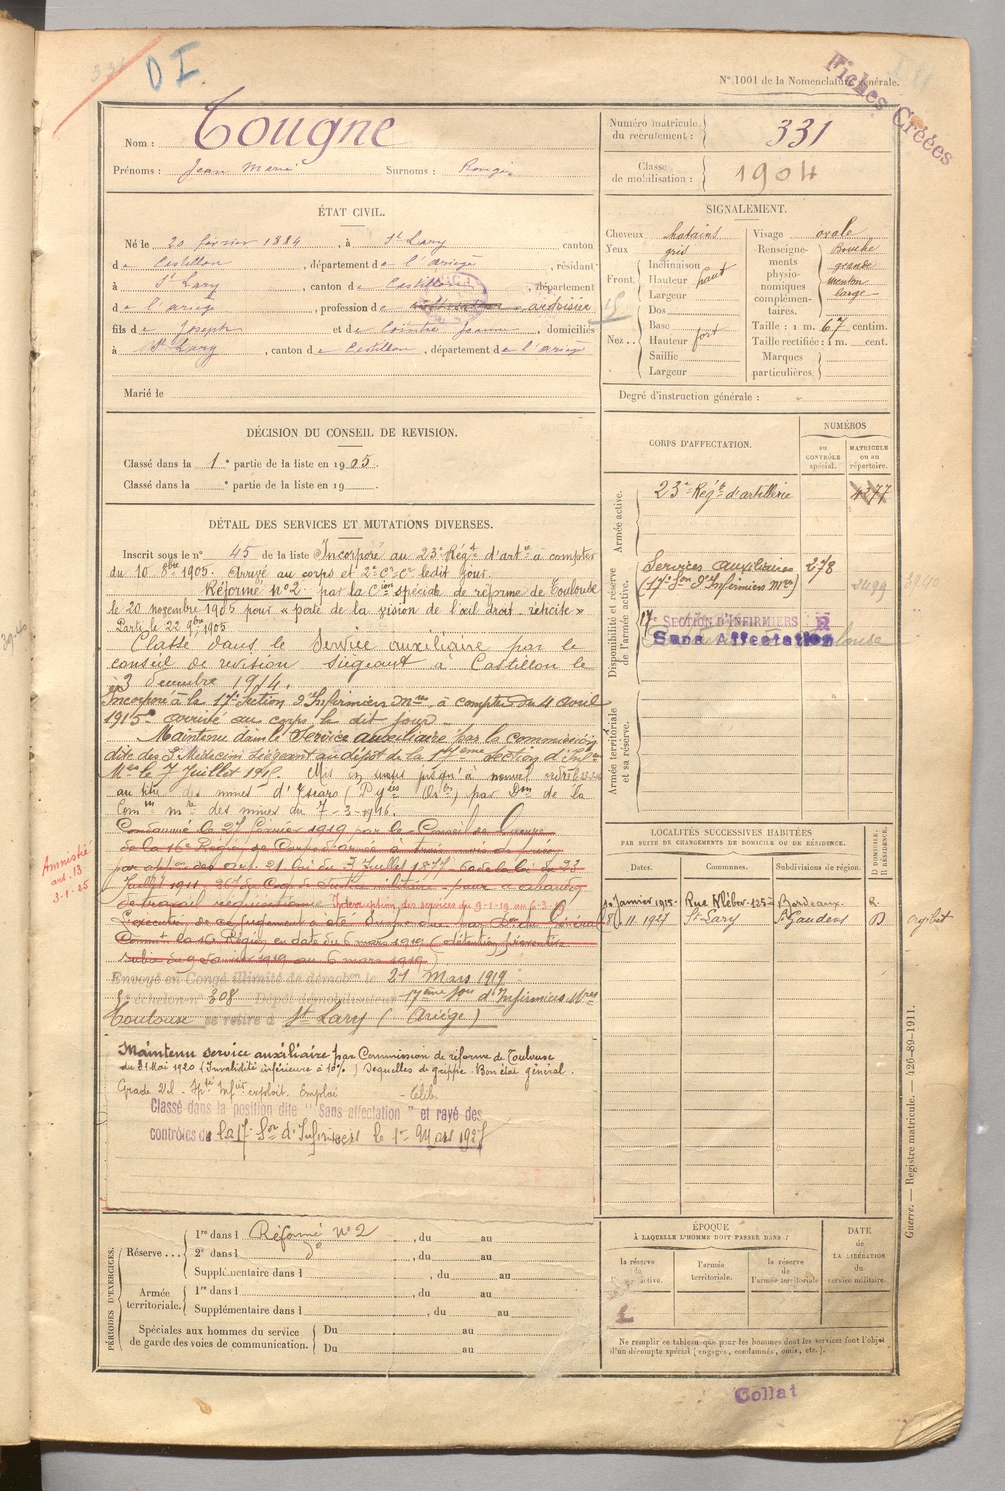 D I
N° 1001 de la Nomenclature générale.
Fiches Créées
Nom : Tougne
Prénoms : Jean Marie Surnoms :
Numéro matricule du recrutement : 331
Classe de mobilisation : 1904
ÉTAT CIVIL.
Né le 20 février 1884, à St Lary canton
de Castillon, département de l'ariege, résidant
à St Lary, canton de Castillon, département
de l'ariege, profession de ardoisier
fils de Joseph et de Cointre Jeanne, domiciliés
à St Lary, canton de Castillon, département de l'ariege
Marié le
SIGNALEMENT.
Cheveux chatains
Yeux gris
Front Inclinaison
Hauteur haut
Largeur
Nez Dos
Base
Hauteur fort
Saillie
Largeur
Visage ovale
Renseignements physionomiques complémentaires. Bouche grande menton large
Taille : 1 m. 67 centim.
Taille rectifiée : 1 m. cent.
Marques particulières
Degré d'instruction générale :
DÉCISION DU CONSEIL DE REVISION.
Classé dans la 1e partie de la liste en 1905.
Classé dans la e partie de la liste en 19
CORPS D'AFFECTATION.
NUMÉROS
au CONTRÔLE spécial.
MATRICULE ou au répertoire.
Armée active.
23e Régt d'artillerie 4277
Disponibilité et réserve de l'armée active.
Services auxiliaires 278
(17e Son d'Infirmiers Mres) 2499
17e SECTION D'INFIRMIERS R
Sans Affectation
Armée territoriale et sa réserve.
DÉTAIL DES SERVICES ET MUTATIONS DIVERSES.
Inscrit sous le n° 45 de la liste Incorporé au 23e Régt d'artie à compter
du 10 8bre 1905. Arrivé au corps et 2e Cr Cr ledit jour.
Réformé N°2 par la Cion spéciale de réforme de Toulouse
le 20 novembre 1905 pour « perte de la vision de l'œil droit. rétinite »
Parti le 22 9bre 1905
Classé dans le Service auxiliaire par le
conseil de revision siégeant à Castillon le
3 décembre 1914.
Incorporé à la 17e Section d'Infirmiers Mres à compter du 4 avril
1915. arrivé au corps le dit jour.
Maintenu dans le Service auxiliaire par la commission
dite des 3 Médecins siégeant au dépôt de la 17eme Section d'Infers
Mres le 7 Juillet 1915. Mis en sursis jusqu'à nouvel ordre
au titre des mines d' (Pyées Ores) par Don de la
Comon mre des mines du 7-3-1916.
Condamné le 27 février 1919 par le Conseil de Guerre
de la 16e Région de Corps d'armée à trois mois de prison
par appon des art. 21 loi du 3 Juillet 1877 Code loi du 23
Juillet 1911. 267 du Code de Justice militaire pour « abandon
de travail réquisitionné Interruption des services du 9-1-19 au 6-3-19
L'exécution de ce jugement a été suspendue par Don du Général
Commt la 16e Région en date du 6 mars 1919 (détention préventive
subie du 9 Janvier 1919 au 6 mars 1919)
Amnistié
art. 13
3-1-25
Envoyé en Congé illimité de démobon le 21 Mars 1919
échelon n° 308 Dépôt démobilisateur 17ème Son d'Infirmiers Mres
Toulouse se retire à St Lary (Ariège)
Maintenu service auxiliaire par Commission de réforme de Toulouse
du 31 Mai 1920 (Invalidité inférieure à 10%) Sequelles de grippe. Bon état général.
Classé dans la position dite " Sans affectation " et rayé des
contrôles de la 17e Son d'Infirmiers le 1er Mars 1927
LOCALITÉS SUCCESSIVES HABITÉES
PAR SUITE DE CHANGEMENTS DE DOMICILE OU DE RÉSIDENCE.
Dates. Communes. Subdivisions de région. D DOMICILE, R RÉSIDENCE.
10 Janvier 1915 Rue Kléber 125 Bordeaux R.
8 11. 1927 St Lary St Gaudens D
PÉRIODES D'EXERCICES.
Réserve 1re dans l Réformé N°2, du au
2e dans l do, du au
Supplémentaire dans l, du au
Armée territoriale. 1re dans l, du au
Supplémentaire dans l, du au
Spéciales aux hommes du service de garde des voies de communication. Du au
Du au
ÉPOQUE
À LAQUELLE L'HOMME DOIT PASSER DANS :
la réserve de l'active.
l'armée territoriale.
la réserve de l'armée territoriale
DATE de LA LIBÉRATION du service militaire.
Ne remplir ce tableau que pour les hommes dont les services font l'objet
d'un décompte spécial (engagés, condamnés, omis, etc.).
Guerre. — Registre matricule. — 426-89-1911.
Collat